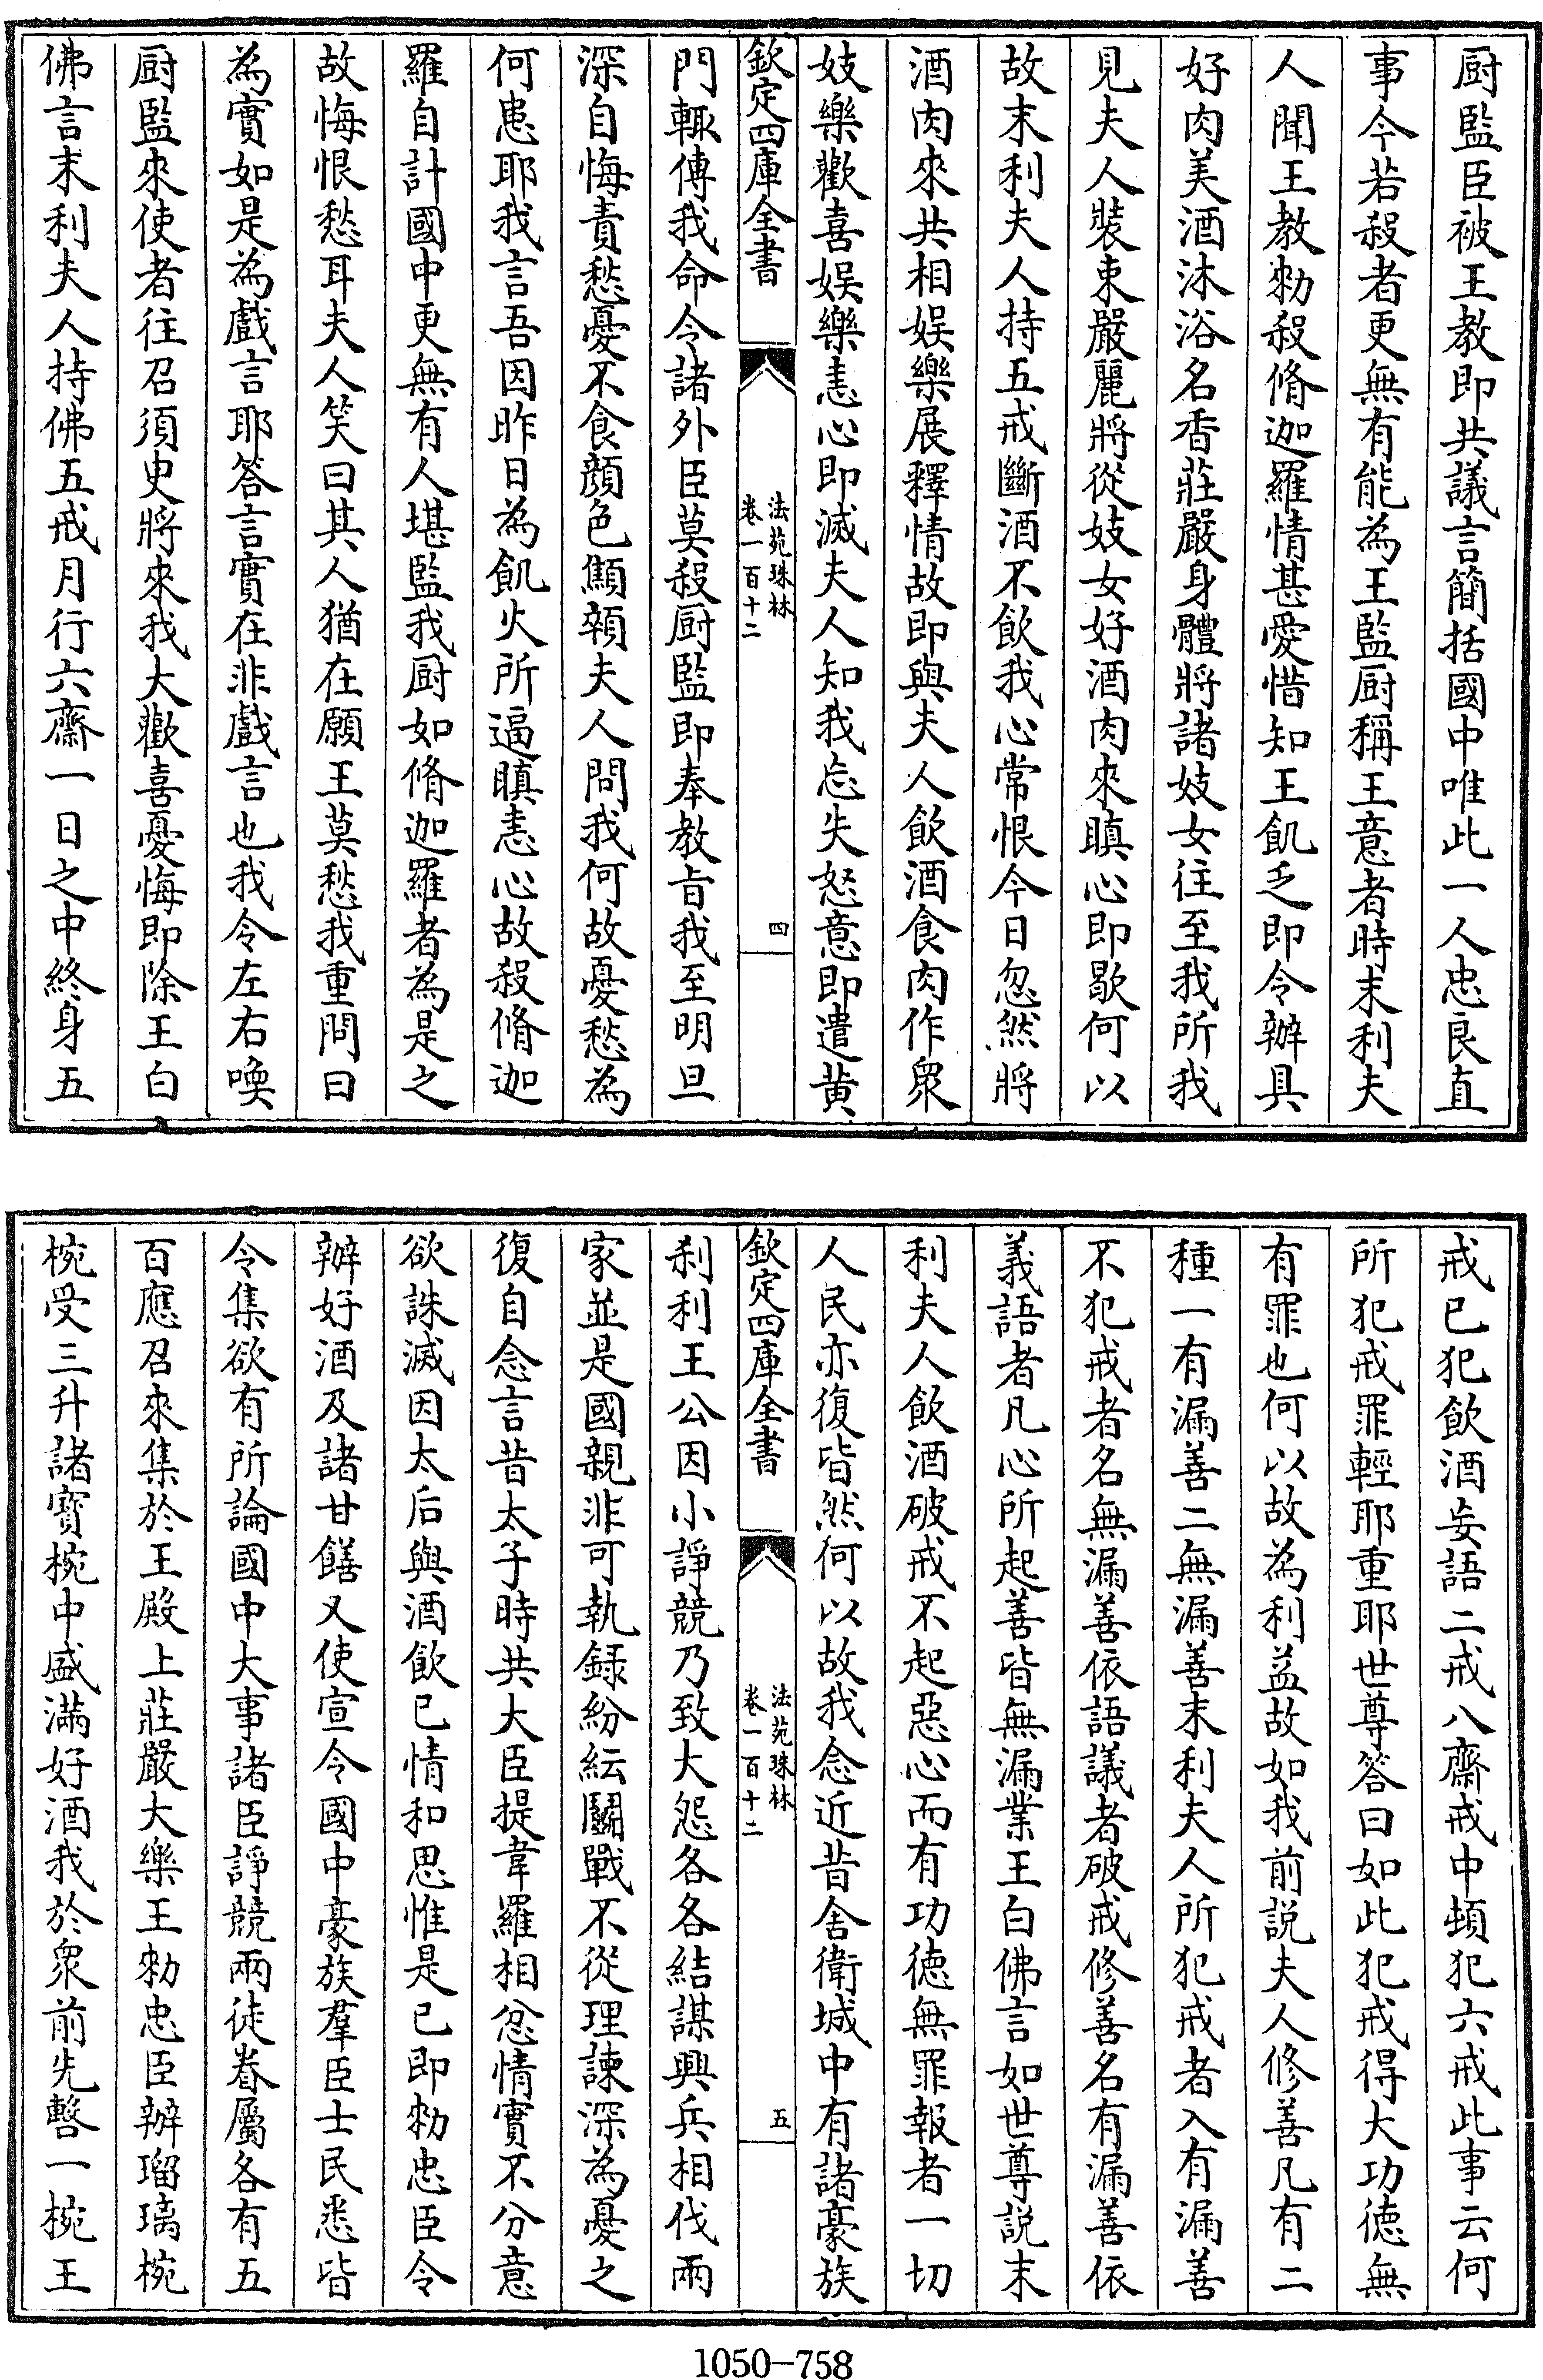 厨監臣被王教即共議言簡括國中唯此一人忠良直
事今若殺者更無有能為王監厨稱王意者時末利夫
人聞王教勑殺脩迦羅情甚愛惜知王飢乏即令辦具
好肉美酒沐浴名香莊嚴身體將諸妓女往至我所我
見夫人裝束嚴麗將從妓女好酒肉來瞋心即歇何以
故末利夫人持五戒斷酒不飲我心常恨今日忽然將
酒肉來共相娛樂展釋情故即與夫人飲酒食肉作衆
妓樂歡喜娛樂恚心即滅夫人知我忘失怒意即遣黄
欽定四庫全書
法苑珠林
卷一百十二
四
門輙傳我命令諸外臣莫殺厨監即奉教旨我至明旦
深自悔責愁憂不食顔色顦顇夫人問我何故憂愁為
何患耶我言吾因昨日為飢火所逼瞋恚心故殺脩迦
羅自計國中更無有人堪監我厨如脩迦羅者為是之
故悔恨愁耳夫人笑曰其人猶在願王莫愁我重問曰
為實如是為戲言耶答言實在非戲言也我令左右喚
厨監來使者往召須臾將來我大歡喜憂悔即除王白
佛言末利夫人持佛五戒月行六齋一日之中終身五
戒已犯飲酒妄語二戒八齋戒中頓犯六戒此事云何
所犯戒罪輕耶重耶世尊答曰如此犯戒得大功徳無
有罪也何以故為利益故如我前説夫人修善凡有二
種一有漏善二無漏善末利夫人所犯戒者入有漏善
不犯戒者名無漏善依語議者破戒修善名有漏善依
義語者凡心所起善皆無漏業王白佛言如世尊説末
利夫人飲酒破戒不起惡心而有功徳無罪報者一切
人民亦復皆然何以故我念近昔舍衛城中有諸豪族
欽定四庫全書
法苑珠林
卷一百十二
五
刹利王公因小諍競乃致大怨各各結謀興兵相伐兩
家並是國親非可執録紛紜鬬戰不從理諫深為憂之
復自念言昔太子時共大臣提韋羅相忿情實不分意
欲誅滅因太后與酒飲已情和思惟是已即勑忠臣令
辦好酒及諸甘饍又使宣令國中豪族羣臣士民悉皆
令集欲有所論國中大事諸臣諍競兩徒眷屬各有五
百應召來集於王殿上莊嚴大樂王勑忠臣辦瑠璃椀
椀受三升諸寳椀中盛滿好酒我於衆前先㗜一椀王
1050-758